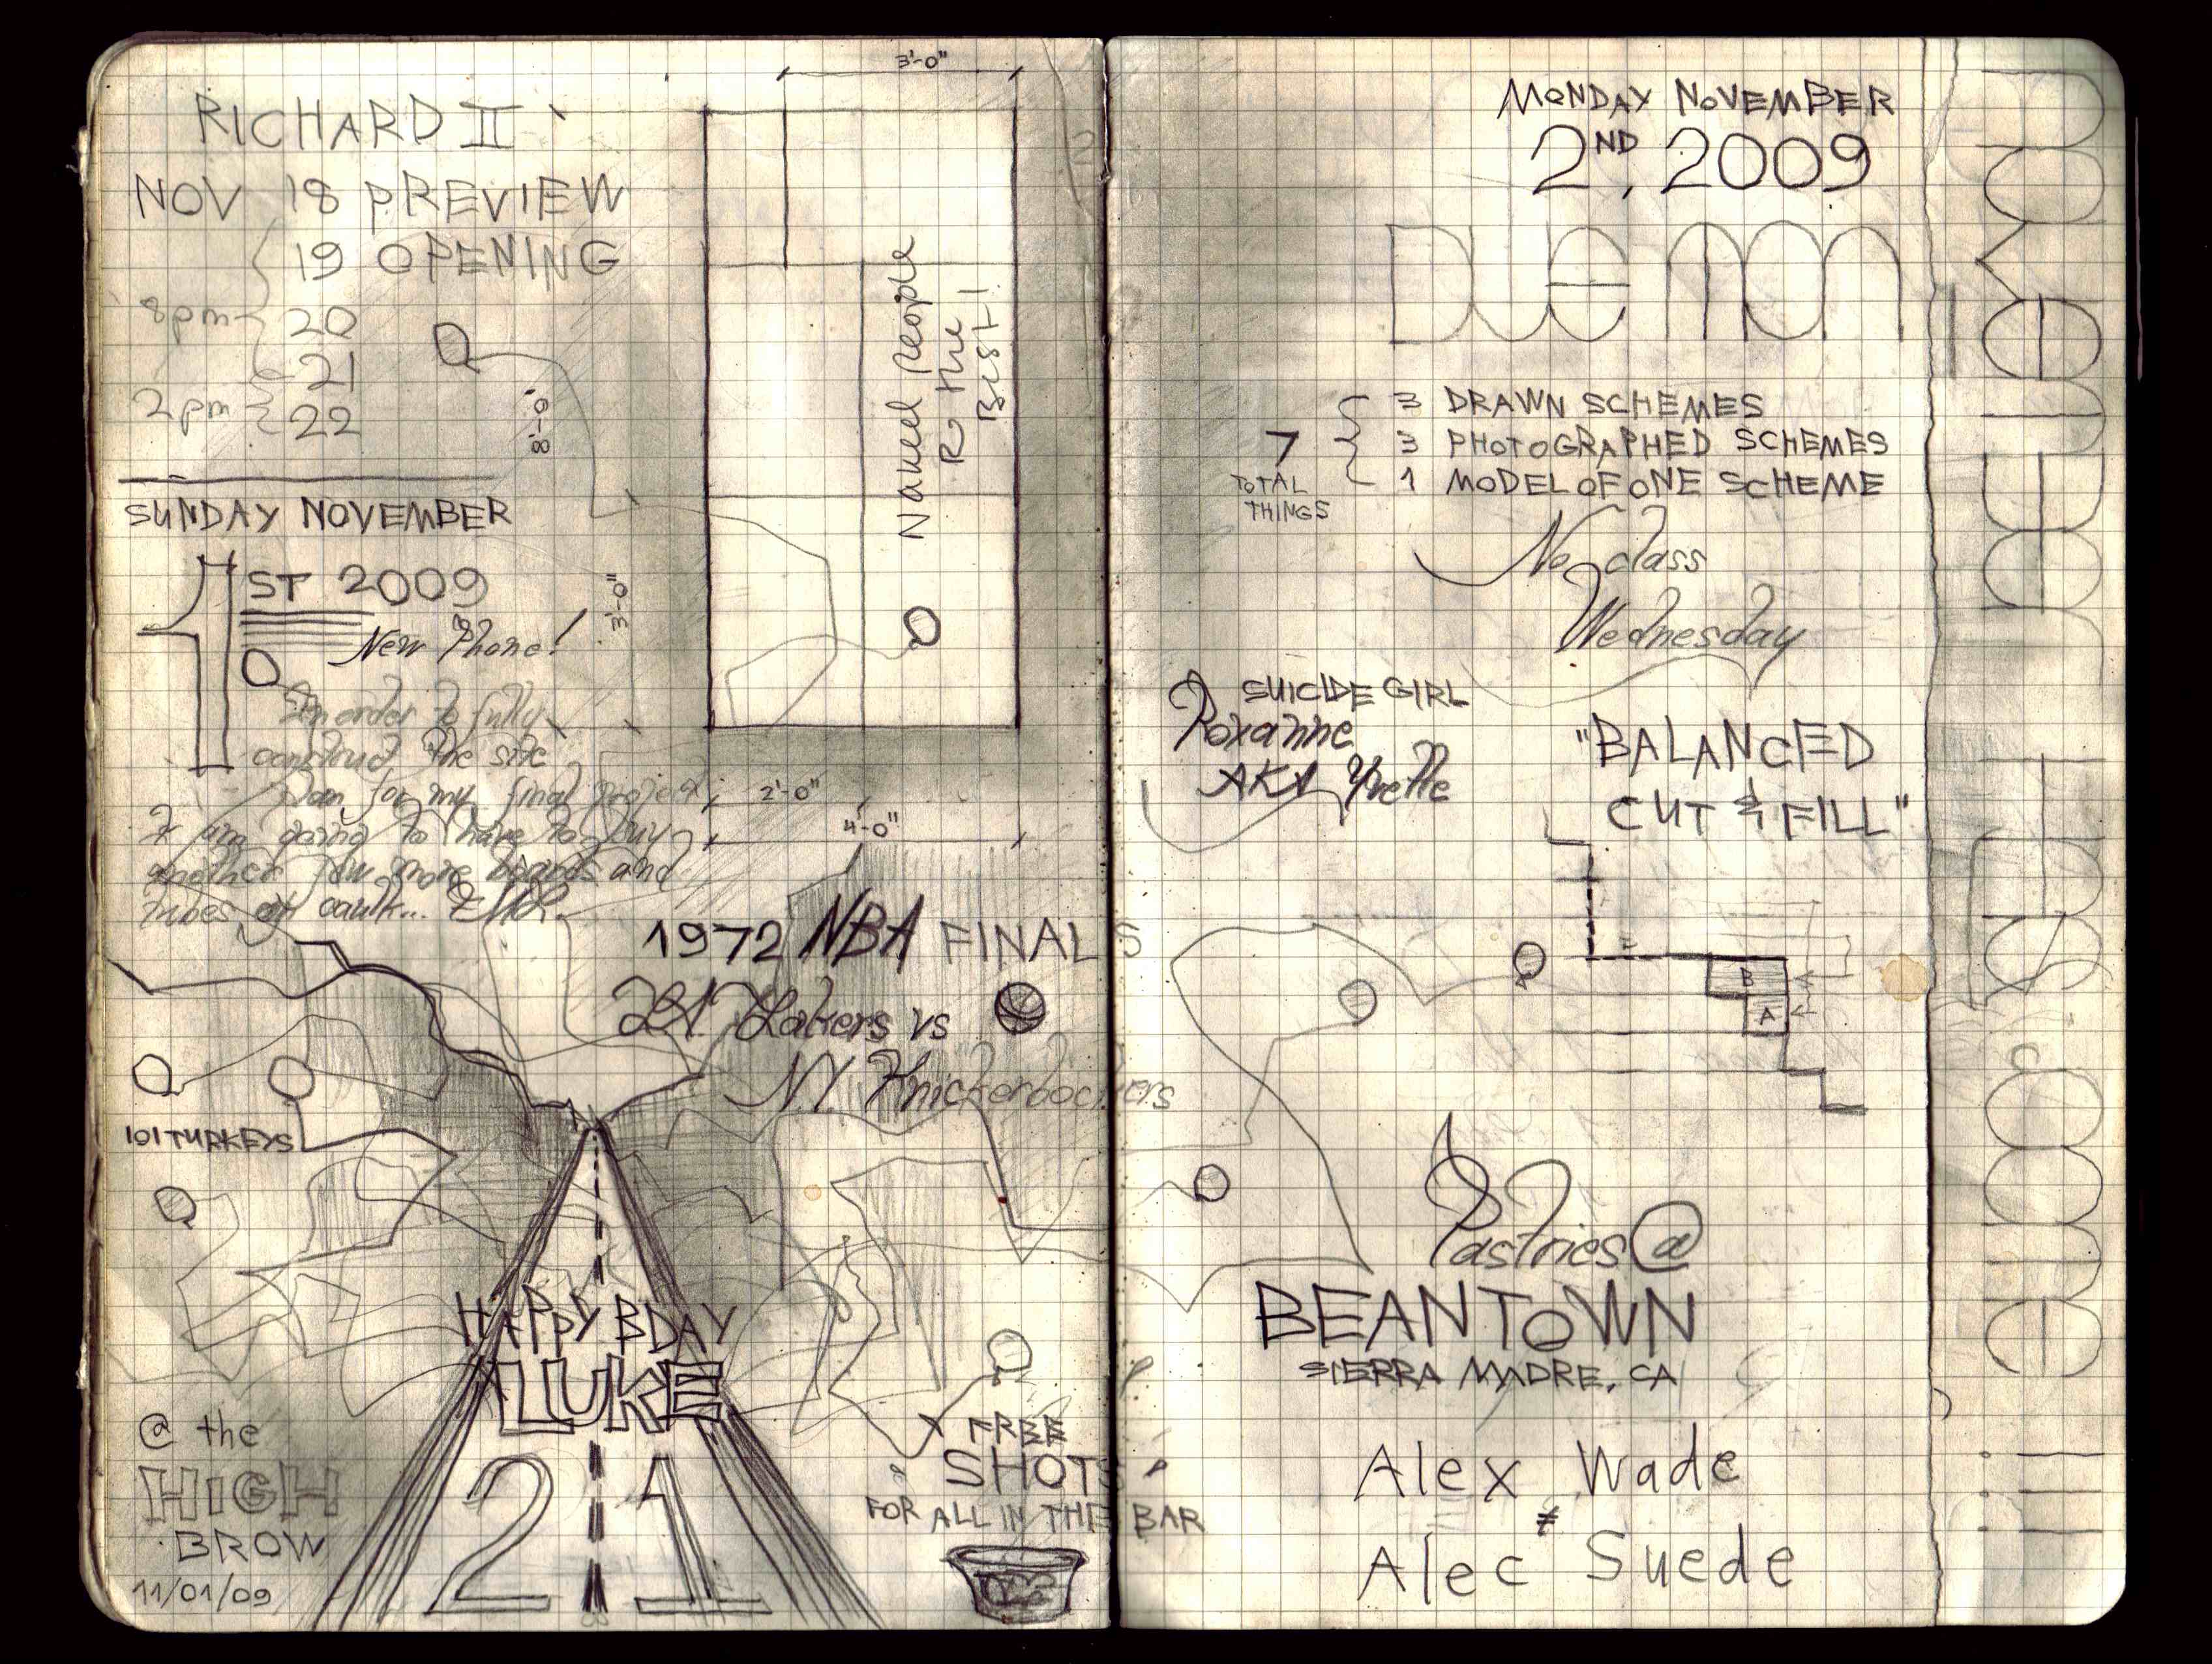 RICHARD II
NOV 18 PREVIEW
19 OPENING
8pm 20
21
2pm 22
8'-0"
3'-0"
Naked people
R the
Best!
SUNDAY NOVEMBER
1ST 2009
New Phone!
3'-0"
In order to fully
construct the site
Plan for my final project
I am going to have to buy
another few more boards and
tubes of caulk...
2'-0"
4'-0"
1972 NBA FINALS
LA Lakers vs
N.Y. Knickerbockers
101 TURKEYS
HAPPY BDAY
LUKE
21
@ the
HIGH
BROW
11/01/09
FREE
"SHOTS"
FOR ALL IN THE BAR
MONDAY NOVEMBER
2ND, 2009
DUE MON
7
TOTAL
THINGS
3 DRAWN SCHEMES
3 PHOTOGRAPHED SCHEMES
1 MODEL OF ONE SCHEME
No class
Wednesday
SUICIDE GIRL
Roxanne
AKA Yvette
"BALANCED
CUT & FILL"
B
A
Pastries @
BEANTOWN
SIERRA MADRE, CA
Alex Wade
≠
Alec Suede